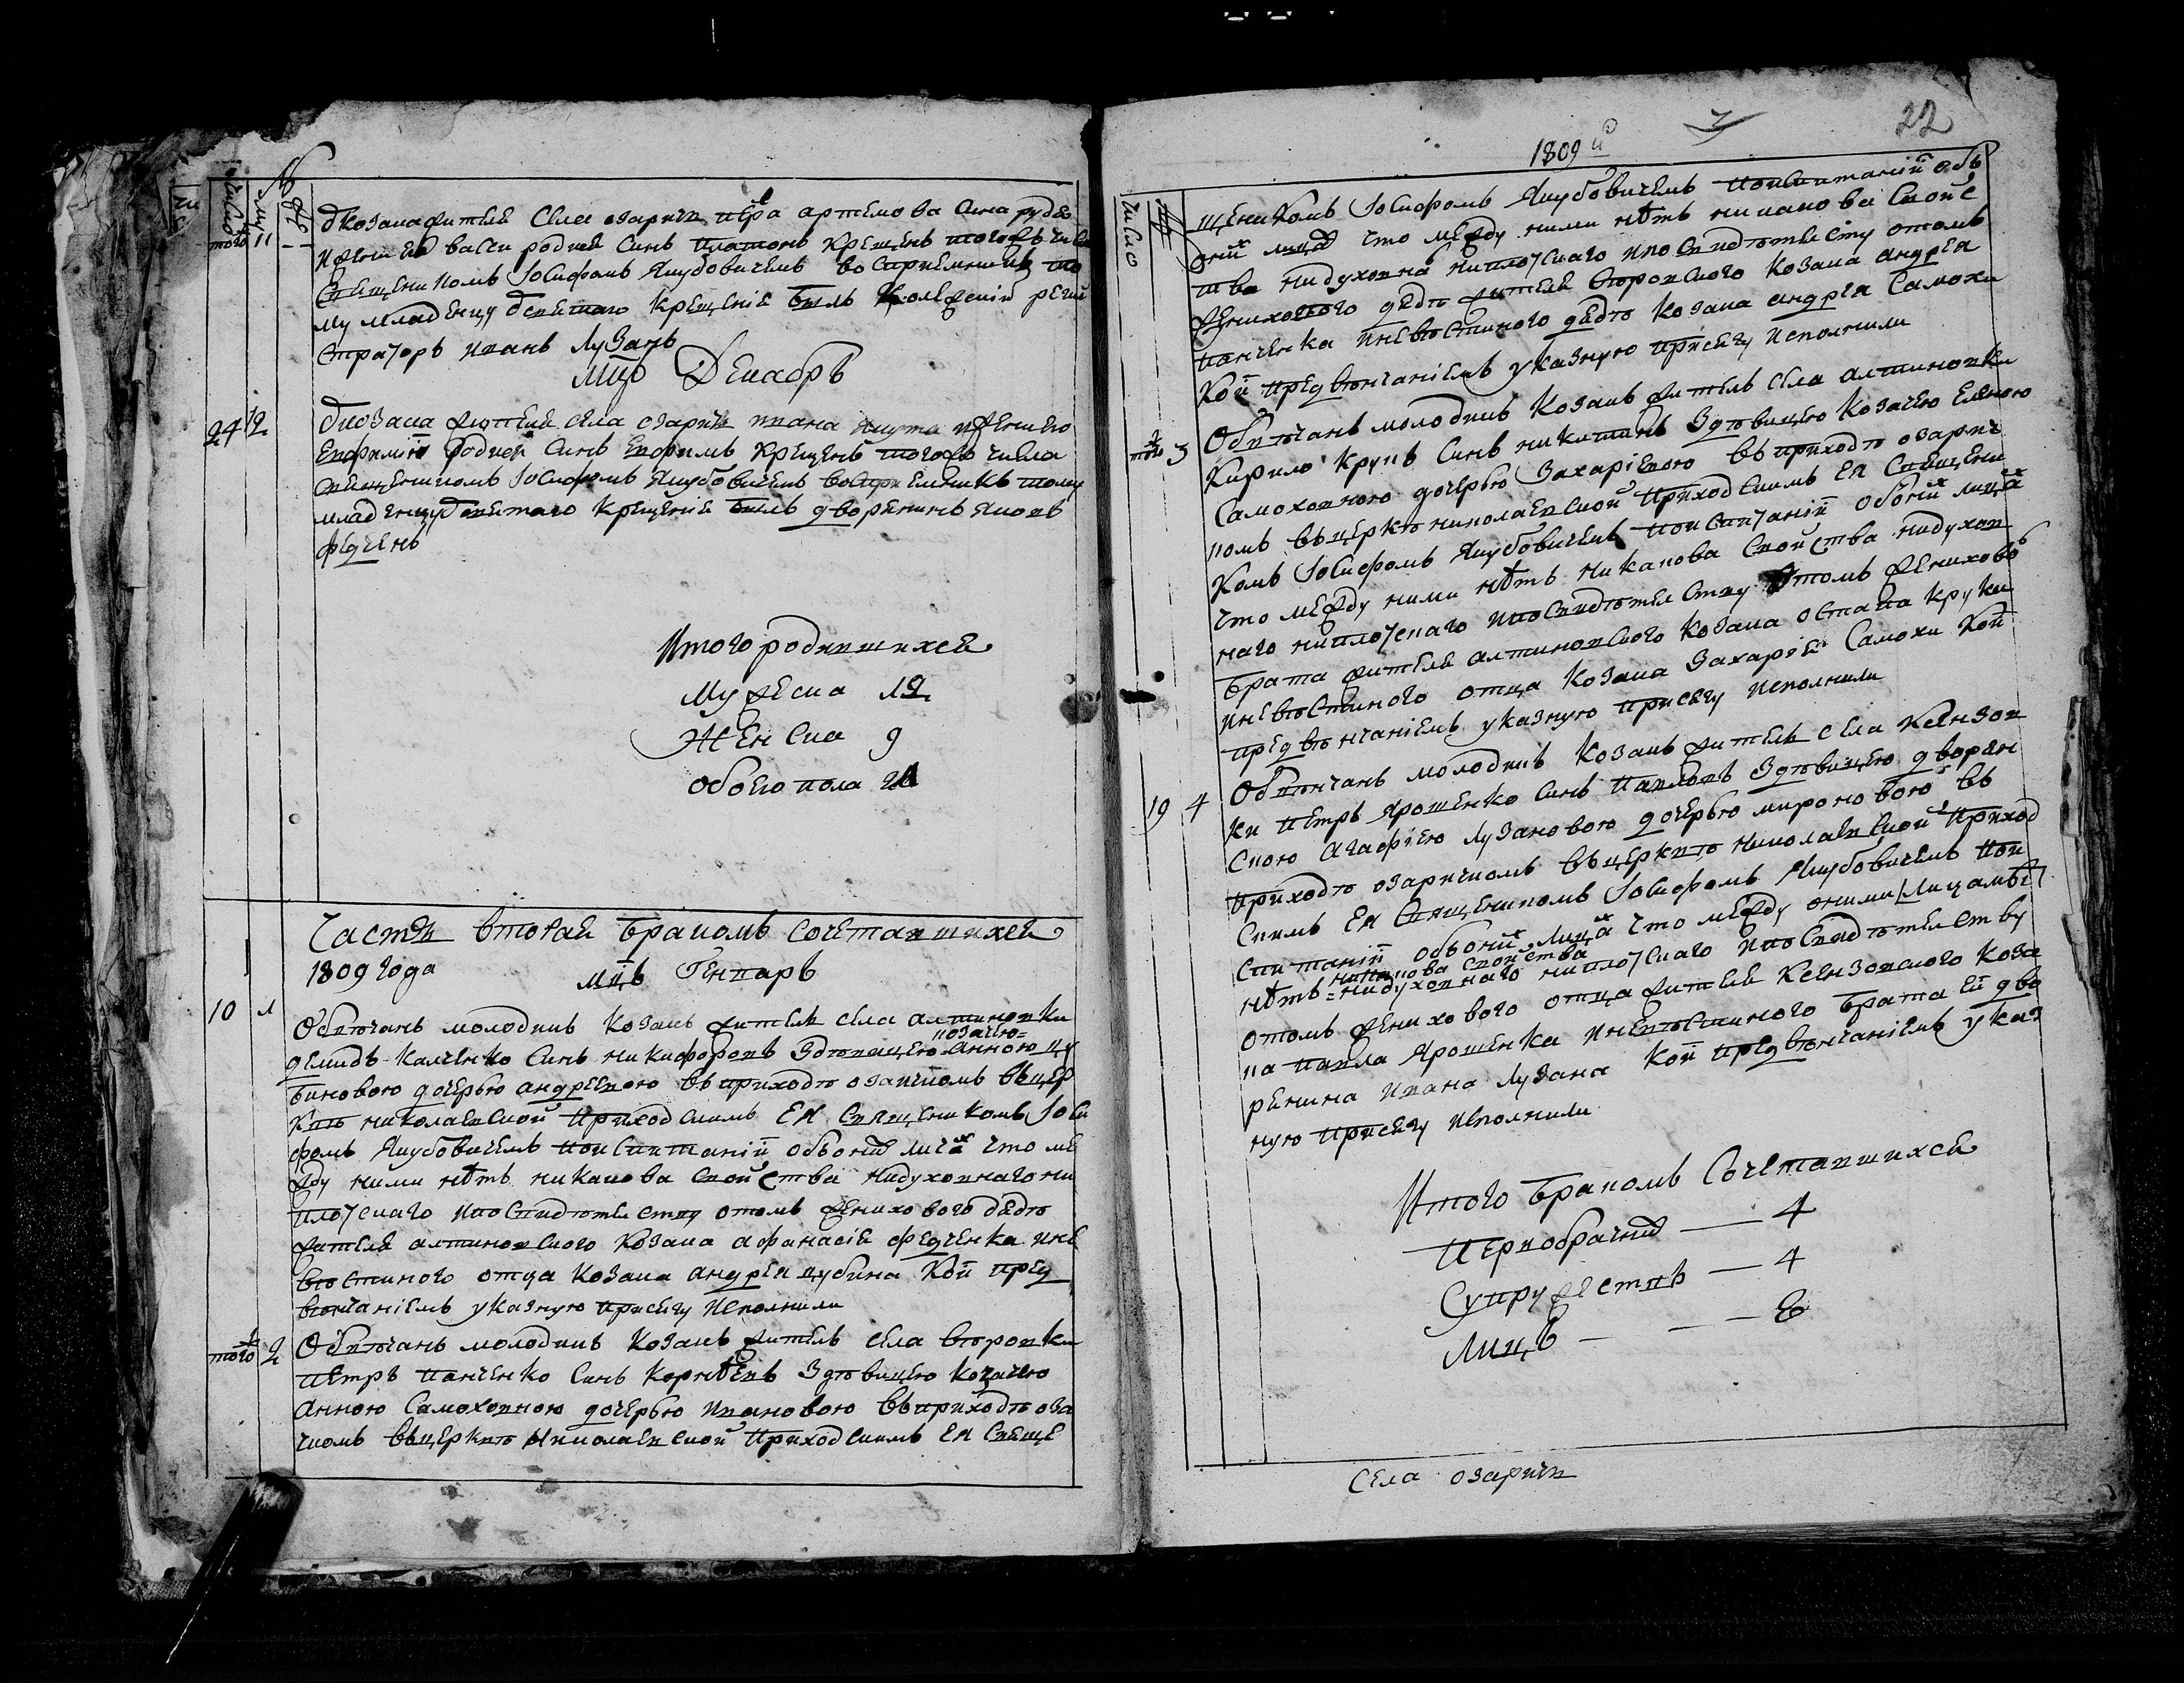 число
№
того 11
У козака жителя села озарич петра артемова сина рудько
и жени ев васси родися синъ платонъ крещенъ того ж числа
священикомъ Iосифомъ Якубовичемъ восприемникъ то
му младенцу у святаго крещенiе билъ колежскiй реги
страторъ иванъ лузанъ
Мцъ Декабрь
24 12
У козака жителя села озаричъ ивана якута и жени его
евфимiи родися синъ евфимъ крещенъ того ж числа
священикомъ Iосифомъ Якубовичемъ восприемникъ тому
младенцу у святаго крещенiе билъ дворенинъ яковъ
федченъ
Итого родившихся
Мужеска 12
Женска 9
Обоего пола 21
Часть вторая бракомъ сочетавшихся
1809 года мцъ Генваръ
10 1
Обвѣчанъ молодикъ козакъ житель села алтиновки
демидъ калченко синъ никифоровъ з дѣвицею козачею анною цу
биновою дочерью андреевою въ приходѣ озаричкомъ въ цер
квѣ николаевской приходскимъ ея священикомъ Iоси
фомъ Якубовичемъ по испитанiи обооних лицъ что ме
жду ними нѣтъ никакова свойства нидуховнаго ни
плотскаго и по свидѣтелству о томъ женихового дядѣ
жителя алтиновского козака афанасiя федченка и не
вѣстиного отца козака андрея цубина кои пред
вѣнчанiемъ указную присягу исполнили
того ж 2
Обвѣчанъ молодикъ козакъ житель села вѣровки
петръ панченко синъ корнѣевъ з дѣвицею козачею
анною самоховною дочерью ивановою въ приходѣ оза
чкомъ въ церквѣ николаевской приходскимъ ея свяще
1809 й
22
число
щеникомъ Iосифомъ Якубовичемъ по испитанiи обѣ
оних лицъ что между ними нѣтъ никакова свойс
тва нидуховна ниплотскаго и по свидѣтелству о томъ
женихового дядѣ жителя вѣровского козака андрея
панченка и невѣстиного дядѣ козака андрея самохи
кои предвѣнчанiемъ указную присягу исполнили
того ж 3
Обвѣчанъ молодикъ козакъ житель села алтиновки
кирило крупъ синъ никитинъ з дѣвицею козачею еленою
самоховною дочерью захарiевою въ приходѣ озарич
комъ въ церквѣ николаевской приходскимъ ея священи
комъ Iосифомъ Якубовичемъ по испитанiи обоних лицъ
что между ними нѣтъ никакова свойства нидухов
наго ниплотскаго и по свидѣтелству о томъ жениховъ
брата жителя алтиновского козака остапа крупи
и невѣстиного отца козака захарiя самохи кои
предвѣнчанiемъ указную присягу исполнили
19 4
Обвѣнчанъ молодикъ козакъ житель села ксензов
ки петръ ярошенко синъ павловъ з дѣвицею дворян
скою агафiею лузановою дочерью мироновою въ
приходѣ озаричкомъ въ церквѣ николаевской приход
скимъ ея священикомъ Iосифомъ Якубовичемъ по и
спитанiи обоних лицъ что между оними лицамы
нѣтъ никакова свойства нидуховнаго ниплотскаго и по свидѣтелству
о томъ женихового отца жителя ксензовского коза
ка павла ярошенка и невѣстиного брата ей дво
ренина ивана лузана кои предвѣнчанiемъ указ
ную присягу исполнили
Итого бракомъ сочетавшихся
первобрачних — 4
супружествъ — 4
лицъ — — 8
села озаричъ